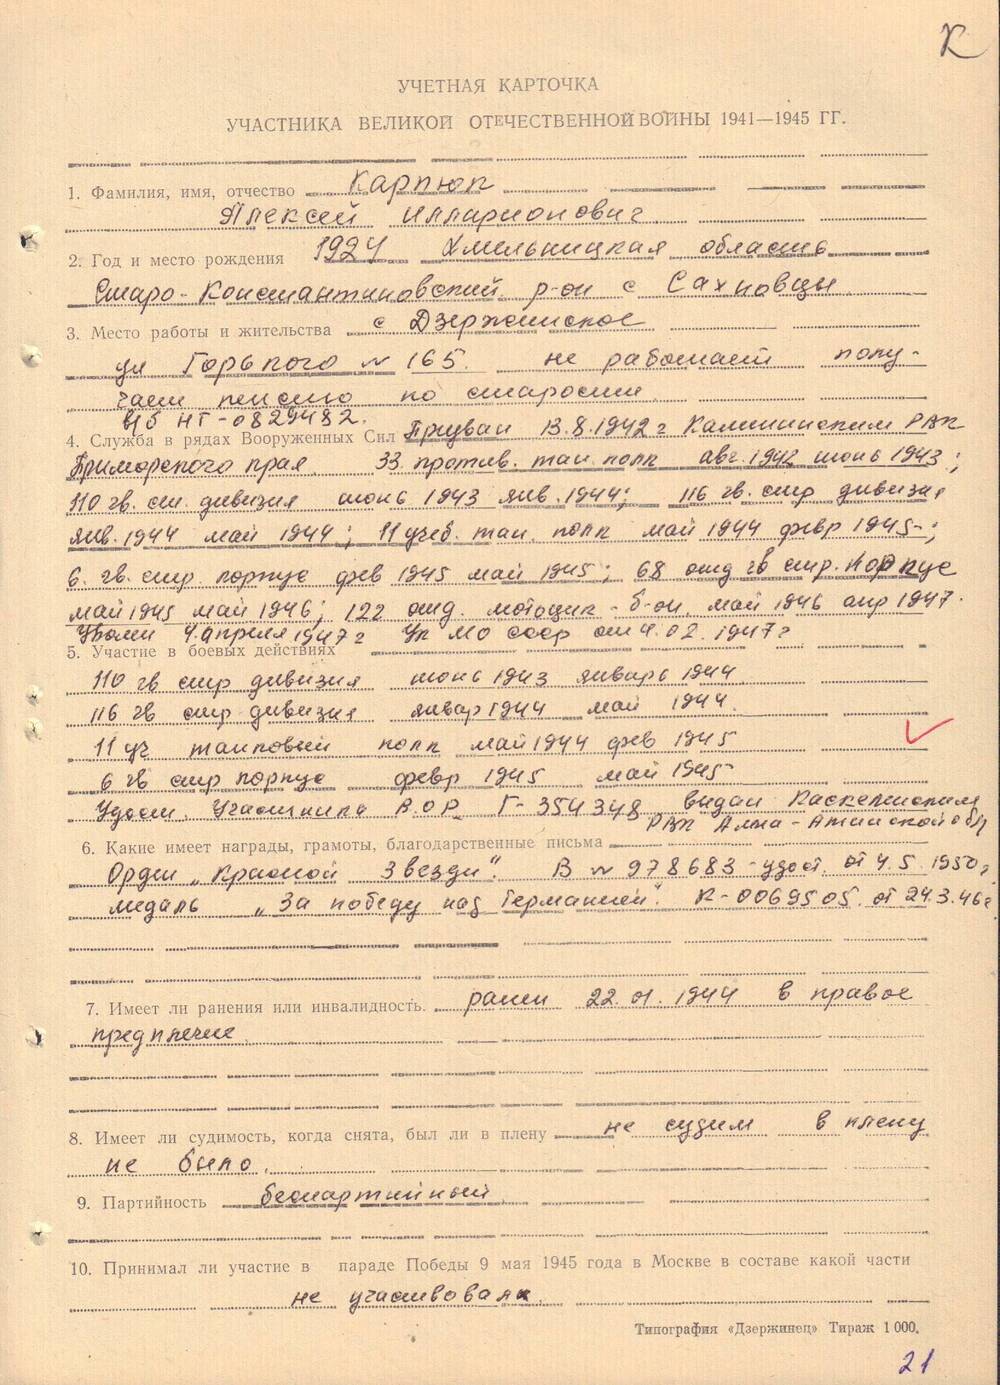 К
УЧЕТНАЯ КАРТОЧКА
УЧАСТНИКА ВЕЛИКОЙ ОТЕЧЕСТВЕННОЙ ВОЙНЫ 1941—1945 ГГ.
1. Фамилия, имя, отчество Карпюк
Алексей Илларионович
2. Год и место рождения 1924 Хмельницкая область
Старо-Константиновский р-он с Сахновцы
3. Место работы и жительства с Дзержинское
ул Горького № 165. не работает полу-
чает пенсию по старости.
в/б НГ-0829482.
4. Служба в рядах Вооруженных Сил Призван 13.8.1942 г Калининским РВК
Приморского края 33 против. тан. полк авг. 1942 июнь 1943;
110 гв. см. дивизия июнь 1943 янв. 1944; 116 гв. стр дивизия
янв. 1944 май 1944; 11 учеб. тан. полк май 1944 февр 1945;
6. гв. стр. корпус фев 1945 май 1945; 68 отд гв стр. корпус
май 1945 май 1946; 122 отд. мотоцик-б-он. май 1946 апр 1947.
Уволен 4 апреля 1947 г Ук МО СССР от 4.02.1947 г
5. Участие в боевых действиях
110 гв стр дивизия июнь 1943 январь 1944
116 гв стр дивизия январ 1944 май 1944.
11 уч танковый полк май 1944 фев 1945
6 гв стр корпус февр 1945 май 1945
Удост. Участника В.О.В. Г-354348 выдан Каскеленским
РВК Алма-Атинской обл
6. Какие имеет награды, грамоты, благодарственные письма
Орден „Красной Звезды". В № 978683-удост. от 4.5.1950 г
медаль „За победу над Германией". К-0069505. от 24.3.46 г.
7. Имеет ли ранения или инвалидность. ранен 22.01.1944 в правое
предплечие
8. Имеет ли судимость, когда снята, был ли в плену не судим в плену
не было.
9. Партийность беспартийный
10. Принимал ли участие в параде Победы 9 мая 1945 года в Москве в составе какой части
не участвовал.
Типография «Дзержинец» Тираж 1 000.
21